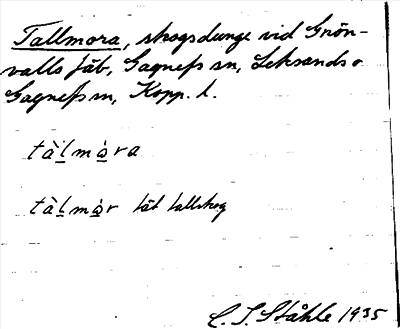 Tallmora, skogsdunge vid Grön-
valls fäb, Gagnefs sn, Leksands o
Gagnefs sn, Kopp. l.
tàl̲mò̲ra
tàl̲mò̲r tät tallskog
C. I. Ståhle 1935